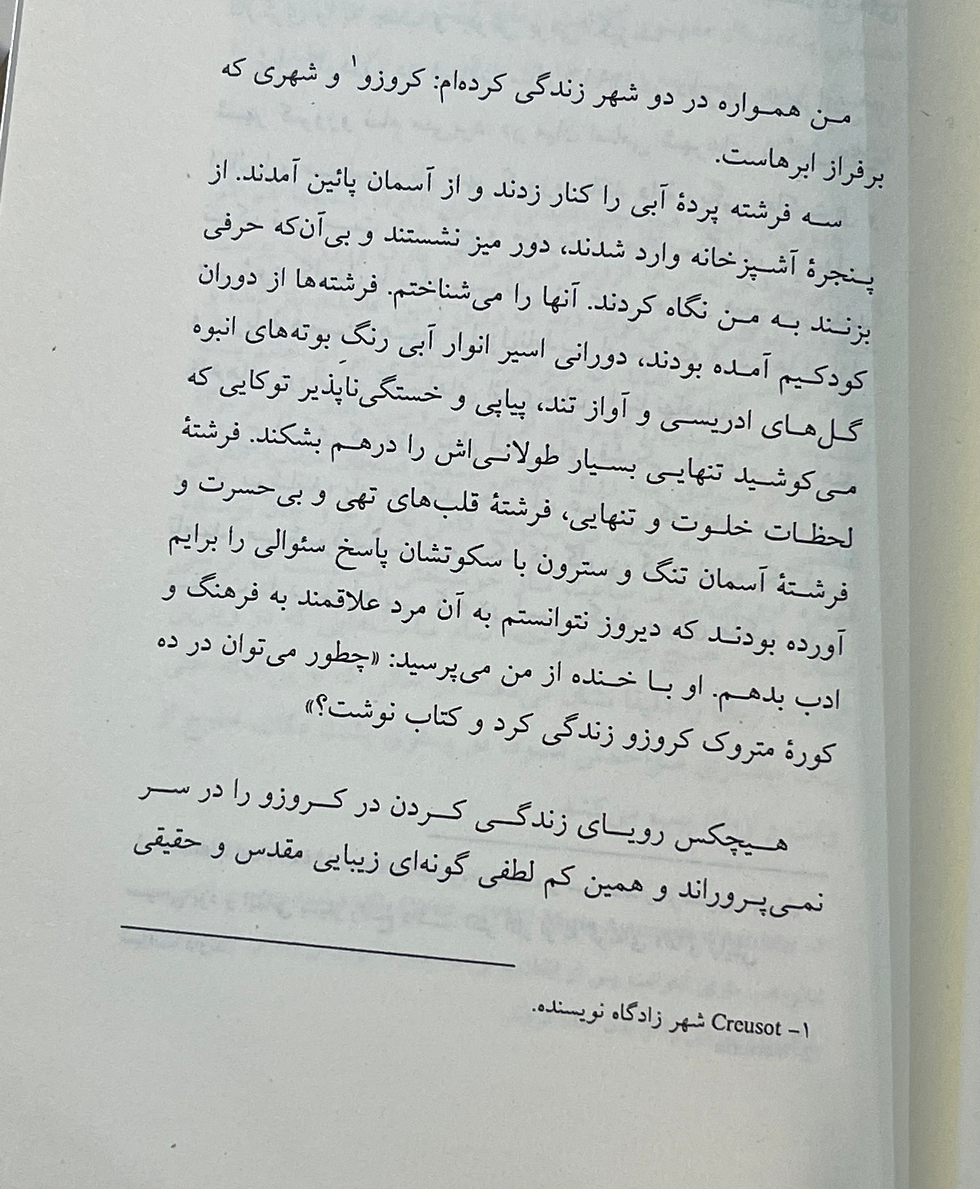 من همواره در دو شهر زندگی کرده‌ام: کروزو۱ و شهری که
برفراز ابرهاست.
سه فرشته پردهٔ آبی را کنار زدند و از آسمان پائین آمدند. از
پنجرهٔ آشپزخانه وارد شدند، دور میز نشستند و بی‌آن‌که حرفی
بزنند به من نگاه کردند. آنها را می‌شناختم. فرشته‌ها از دوران
کودکیم آمده بودند، دورانی اسیر انوار آبی رنگِ بوته‌های انبوه
گل‌های ادریسی و آواز تند، پیاپی و خستگی‌ناپذیر توکایی که
می‌کوشید تنهایی بسیار طولانی‌اش را درهم بشکند. فرشتهٔ
لحظات خلوت و تنهایی، فرشتهٔ قلب‌های تهی و بی‌حسرت و
فرشتهٔ آسمان تنگ و سترون با سکوتشان پاسخ سئوالی را برایم
آورده بودند که دیروز نتوانستم به آن مرد علاقمند به فرهنگ و
ادب بدهم. او با خنده از من می‌پرسید: «چطور می‌توان در ده
کورهٔ متروک کروزو زندگی کرد و کتاب نوشت؟»
هیچکس رویای زندگی کردن در کروزو را در سر
نمی‌پروراند و همین کم لطفی گونه‌ای زیبایی مقدس و حقیقی
۱- Creusot شهر زادگاه نویسنده.